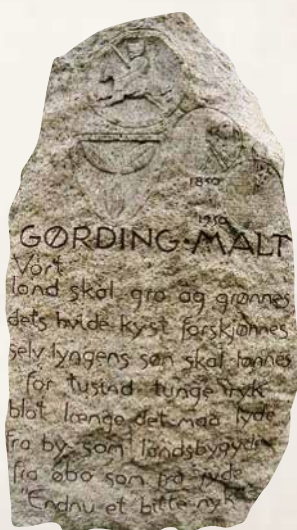 1850
1950
GØRDING·MALT
Vort
land skal gro og grønnes
dets hvide kyst forskjønnes
selv lyngens søn skal lønnes
for tusind tunge ryk
blot længe det maa lyde
fra by som landsbygyde
fra øbo som fra jyde
"Endnu et bitte nyk"